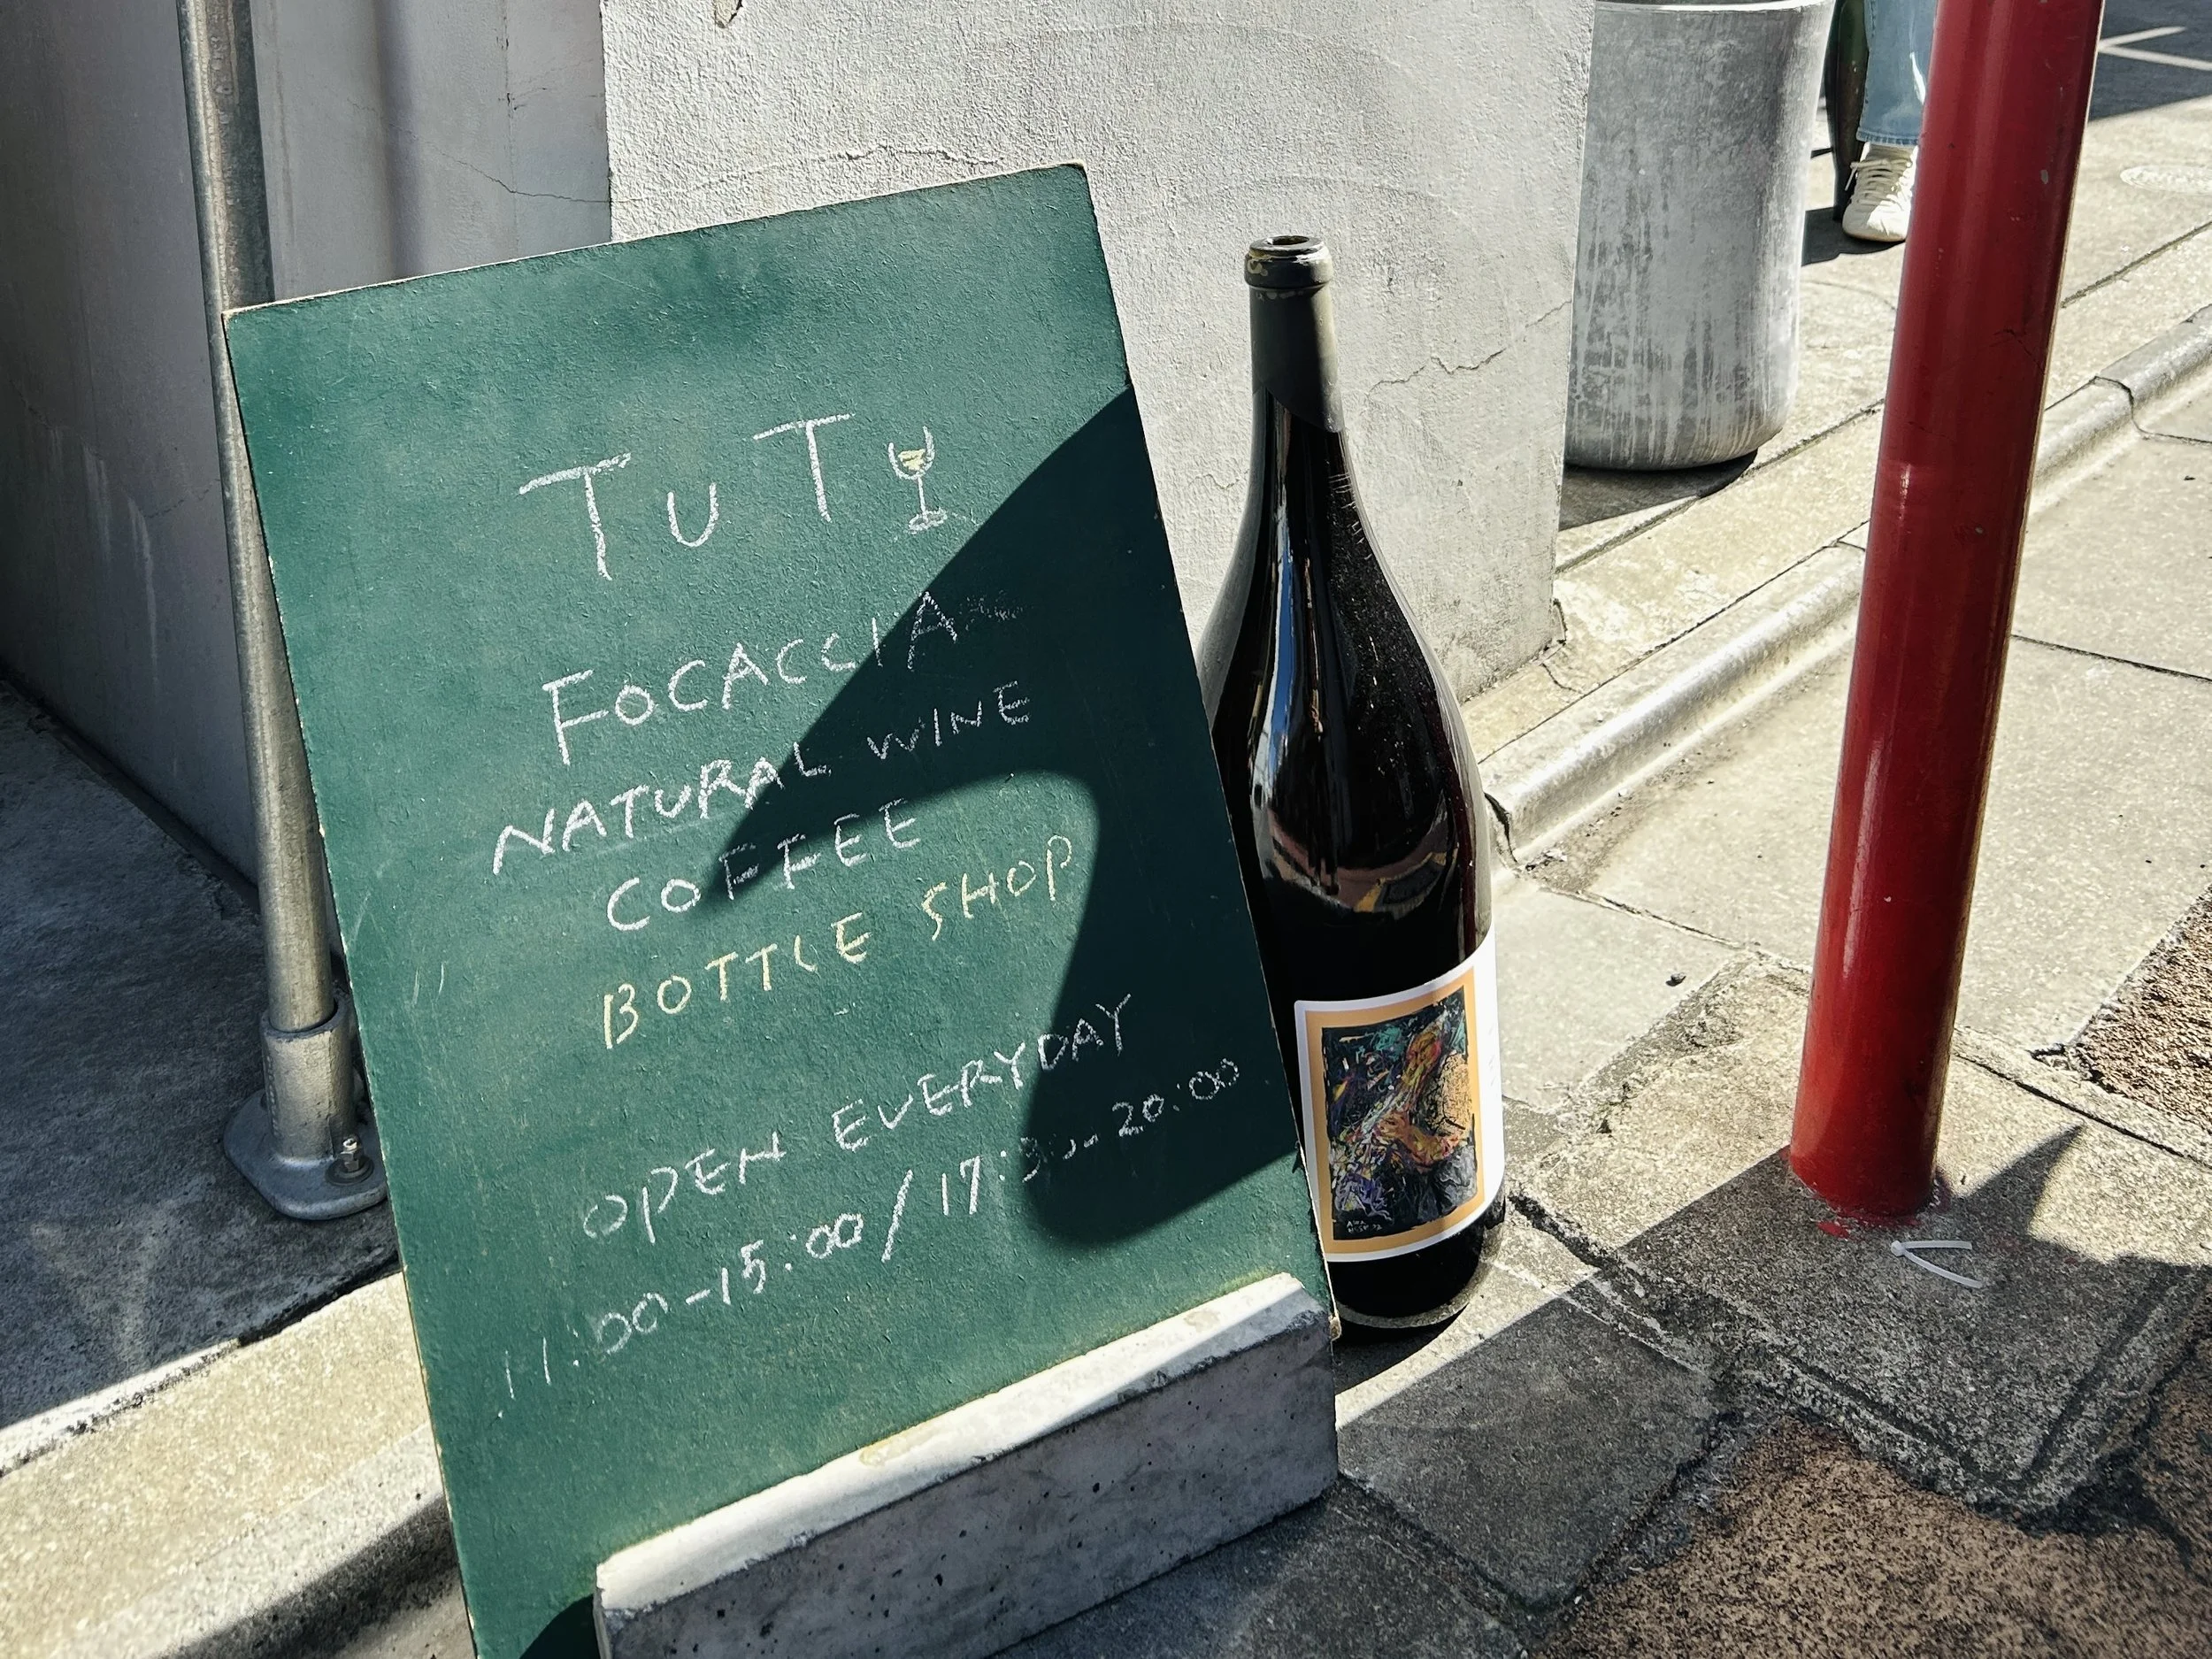 TUT
FOCACCIA
NATURAL WINE
COFFEE
BOTTLE SHOP
OPEN EVERYDAY
11:00-15:00/17:30-20:00